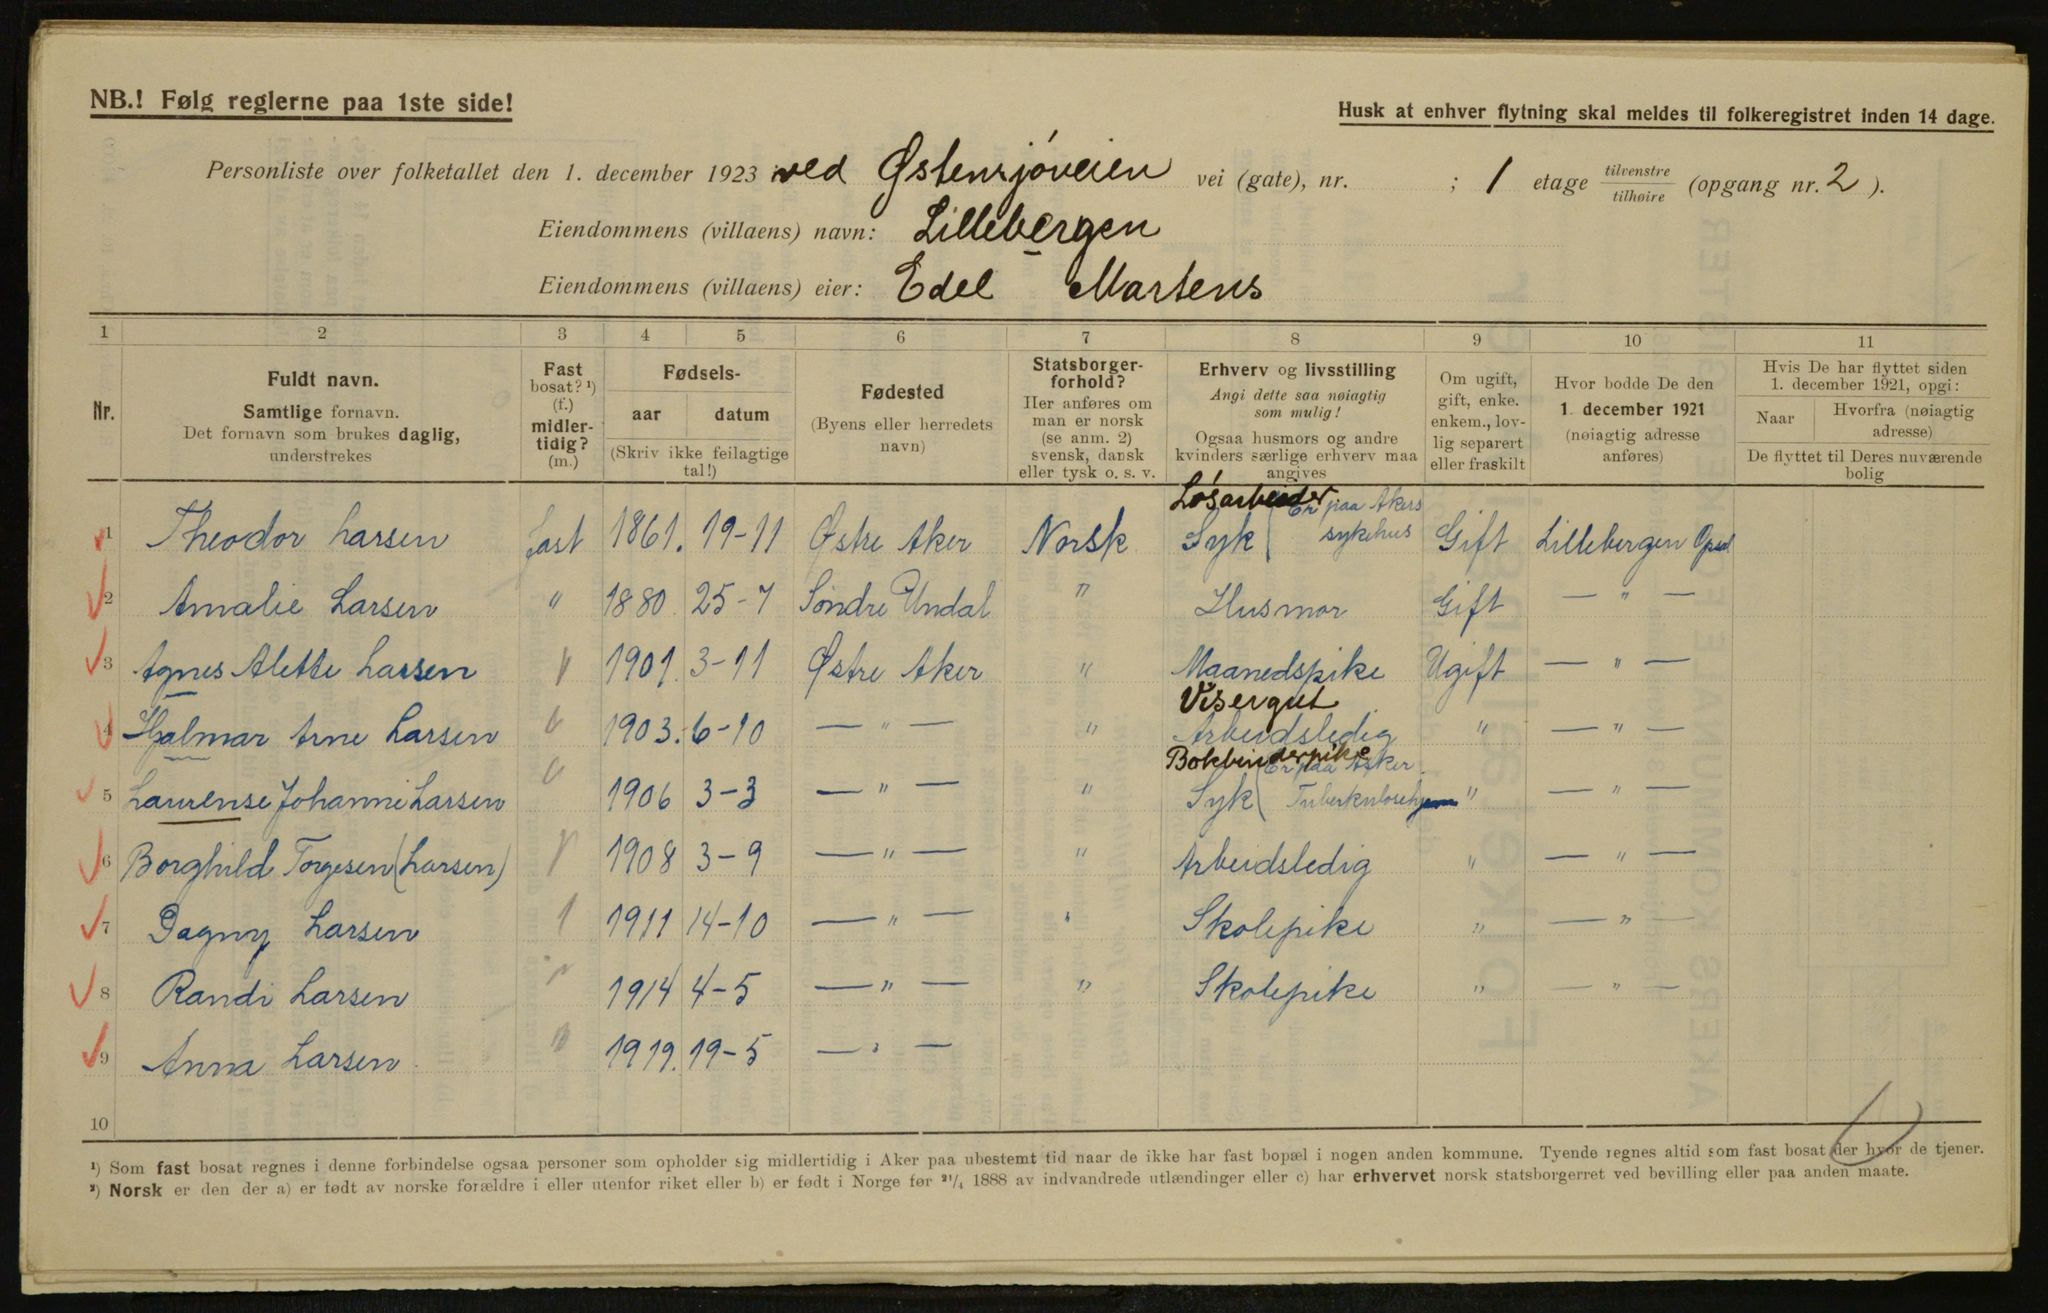 NB.! Følg reglerne paa 1ste side!
Husk at enhver flytning skal meldes til folkeregistret inden 14 dage.
Personliste over folketallet den 1. december 1923 ved Østensjøveien vei (gate), nr. ; 1 etage tilvenstre/tilhøire (opgang nr. 2 ).
Eiendommens (villaens) navn: Lillebergen
Eiendommens (villaens) eier: Edel Martens
1 2 3 4 5 6 7 8 9 10 11
Nr.
Fuldt navn.
Samtlige fornavn.
Det fornavn som brukes daglig,
understrekes
Fast
bosat? ¹)
(f.)
midler-
tidig?
(m.)
Fødsels-
aar datum
(Skriv ikke feilagtige
tal!)
Fødested
(Byens eller herredets
navn)
Statsborger-
forhold?
Her anføres om
man er norsk
(se anm. 2)
svensk, dansk
eller tysk o. s. v.
Erhverv og livsstilling
Angi dette saa nøiagtig
som mulig!
Ogsaa husmors og andre
kvinders særlige erhverv maa
angives
Om ugift,
gift, enke.
enkem., lov-
lig separert
eller fraskilt
Hvor bodde De den
1. december 1921
(nøiagtig adresse
anføres)
Hvis De har flyttet siden
1. december 1921, opgi:
Naar Hvorfra (nøiagtig
adresse)
De flyttet til Deres nuværende
bolig
Løsarbeider
1 Theodor Larsen fast 1861. 19-11 Østre Aker Norsk Syk ( Er paa Akers sykehus Gift Lillebergen
2 Amalie Larsen " 1880. 25-7 Søndre Undal " Husmor Gift — " —
3 Agnes Alette Larsen " 1901. 3-11 Østre Aker " Maanedspike Ugift — " —
Visergut
4 Hjalmar Arne Larsen " 1903. 6-10 — " — " Arbeidsledig " — " —
Bokbinderpike
5 Laurense Johanne Larsen " 1906 3-3 — " — " Syk ( Er paa Asker Tuberkulosehjem " — " —
6 Borghild Torgesen (Larsen) " 1908 3-9 — " — " Arbeidsledig " — " —
7 Dagny Larsen " 1911 14-10 — " — " Skolepike " — " —
8 Randi Larsen " 1914 4-5 — " — " Skolepike " — " —
9 Anna Larsen " 1919. 19-5 — " —
10
¹) Som fast bosat regnes i denne forbindelse ogsaa personer som opholder sig midlertidig i Aker paa ubestemt tid naar de ikke har fast bopæl i nogen anden kommune. Tyende regnes altid som fast bosat der hvor de tjener.
²) Norsk er den der a) er født av norske forældre i eller utenfor riket eller b) er født i Norge før ²¹/₄ 1888 av indvandrede utlændinger eller c) har erhvervet norsk statsborgerret ved bevilling eller paa anden maate.